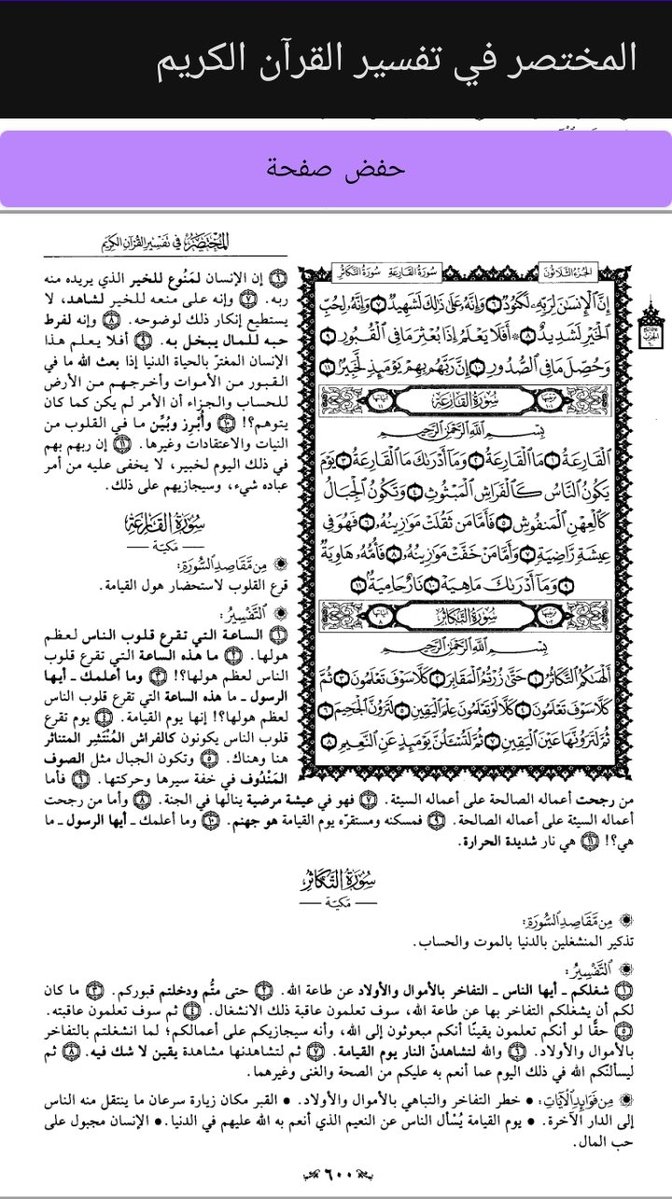 المختصر في تفسير القرآن الكريم
حفض صفحة
المختصر في تفسير القرآن الكريم
الجزء الثلاثون
سورة القارعة
سورة التكاثر
إِنَّ ٱلْإِنسَٰنَ لِرَبِّهِۦ لَكَنُودٌ ٦ وَإِنَّهُۥ عَلَىٰ ذَٰلِكَ لَشَهِيدٌ ٧ وَإِنَّهُۥ لِحُبِّ
ٱلْخَيْرِ لَشَدِيدٌ ٨ ۞ أَفَلَا يَعْلَمُ إِذَا بُعْثِرَ مَا فِى ٱلْقُبُورِ ٩
وَحُصِّلَ مَا فِى ٱلصُّدُورِ ١٠ إِنَّ رَبَّهُم بِهِمْ يَوْمَئِذٍ لَّخَبِيرٌۢ ١١
سورة القارعة
بِسْمِ ٱللَّهِ ٱلرَّحْمَٰنِ ٱلرَّحِيمِ
ٱلْقَارِعَةُ ١ مَا ٱلْقَارِعَةُ ٢ وَمَآ أَدْرَىٰكَ مَا ٱلْقَارِعَةُ ٣ يَوْمَ
يَكُونُ ٱلنَّاسُ كَٱلْفَرَاشِ ٱلْمَبْثُوثِ ٤ وَتَكُونُ ٱلْجِبَالُ
كَٱلْعِهْنِ ٱلْمَنفُوشِ ٥ فَأَمَّا مَن ثَقُلَتْ مَوَٰزِينُهُۥ ٦ فَهُوَ فِى
عِيشَةٍ رَّاضِيَةٍ ٧ وَأَمَّا مَنْ خَفَّتْ مَوَٰزِينُهُۥ ٨ فَأُمُّهُۥ هَاوِيَةٌ
٩ وَمَآ أَدْرَىٰكَ مَا هِيَهْ ١٠ نَارٌ حَامِيَةٌۢ ١١
سورة التكاثر
بِسْمِ ٱللَّهِ ٱلرَّحْمَٰنِ ٱلرَّحِيمِ
أَلْهَىٰكُمُ ٱلتَّكَاثُرُ ١ حَتَّىٰ زُرْتُمُ ٱلْمَقَابِرَ ٢ كَلَّا سَوْفَ تَعْلَمُونَ ٣ ثُمَّ
كَلَّا سَوْفَ تَعْلَمُونَ ٤ كَلَّا لَوْ تَعْلَمُونَ عِلْمَ ٱلْيَقِينِ ٥ لَتَرَوُنَّ ٱلْجَحِيمَ ٦
ثُمَّ لَتَرَوُنَّهَا عَيْنَ ٱلْيَقِينِ ٧ ثُمَّ لَتُسْـَٔلُنَّ يَوْمَئِذٍ عَنِ ٱلنَّعِيمِ ٨
٦ إن الإنسان لمَنُوع للخير الذي يريده منه
ربه. ٧ وإنه على منعه للخير لشاهد، لا
يستطيع إنكار ذلك لوضوحه. ٨ وإنه لفرط
حبه للمال يبخل به. ٩ أفلا يعلم هذا
الإنسان المغترّ بالحياة الدنيا إذا بعث الله ما في
القبور من الأموات وأخرجهم من الأرض
للحساب والجزاء أن الأمر لم يكن كما كان
يتوهم؟! ١٠ وأُبْرِز وبُيِّن ما في القلوب من
النيات والاعتقادات وغيرها. ١١ إن ربهم بهم
في ذلك اليوم لخبير، لا يخفى عليه من أمر
عباده شيء، وسيجازيهم على ذلك.
سورة القارعة
مكية
من مقاصد السورة:
قرع القلوب لاستحضار هول القيامة.
التفسير:
١ الساعة التي تقرع قلوب الناس لعظم
هولها. ٢ ما هذه الساعة التي تقرع قلوب
الناس لعظم هولها؟! ٣ وما أعلمك ـ أيها
الرسول ـ ما هذه الساعة التي تقرع قلوب الناس
لعظم هولها؟! إنها يوم القيامة. ٤ يوم تقرع
قلوب الناس يكونون كالفراش المُنْتَشِر المتناثر
هنا وهناك. ٥ وتكون الجبال مثل الصوف
المَنْدُوف في خفة سيرها وحركتها. ٦ فأما
من رجحت أعماله الصالحة على أعماله السيئة. ٧ فهو في عيشة مرضية ينالها في الجنة. ٨ وأما من رجحت
أعماله السيئة على أعماله الصالحة. ٩ فمسكنه ومستقرّه يوم القيامة هو جهنم. ١٠ وما أعلمك ـ أيها الرسول ـ ما
هي؟! ١١ هي نار شديدة الحرارة.
سورة التكاثر
مكية
من مقاصد السورة:
تذكير المنشغلين بالدنيا بالموت والحساب.
التفسير:
١ شغلكم ـ أيها الناس ـ التفاخر بالأموال والأولاد عن طاعة الله. ٢ حتى متُّم ودخلتم قبوركم. ٣ ما كان
لكم أن يشغلكم التفاخر بها عن طاعة الله، سوف تعلمون عاقبة ذلك الانشغال. ٤ ثم سوف تعلمون عاقبته.
٥ حقًا لو أنكم تعلمون يقينًا أنكم مبعوثون إلى الله، وأنه سيجازيكم على أعمالكم؛ لما انشغلتم بالتفاخر
بالأموال والأولاد. ٦ والله لتشاهدنّ النار يوم القيامة. ٧ ثم لتشاهدنها مشاهدة يقين لا شك فيه. ٨ ثم
ليسألنّكم الله في ذلك اليوم عما أنعم به عليكم من الصحة والغنى وغيرهما.
من فوائد الآيات: • خطر التفاخر والتباهي بالأموال والأولاد. • القبر مكان زيارة سرعان ما ينتقل منه الناس
إلى الدار الآخرة. • يوم القيامة يُسْأل الناس عن النعيم الذي أنعم به الله عليهم في الدنيا. • الإنسان مجبول على
حب المال.
٦٠٠